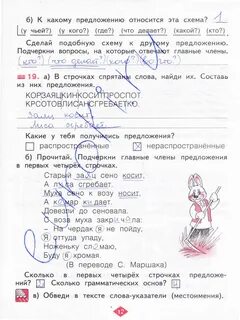 б) К какому предложению относится эта схема? 1
(у чьей?) (у кого?) (где?) (что делает?) (какой?) (кто?)
Сделай подобную схему к другому предложению.
Подчеркни вопросы, на которые отвечают главные члены.
(кто?) (что делает?)
19. а) В строчках спрятаны слова, найди их. Составь
из них предложения.
КОРЗАЯЦКИНКОСИТПРОСПОТ
КРСОТОВЛИСАНСГРЕБАЕТКО
Заяц косит.
Лиса сгребает.
Какие у тебя получились предложения?
распространённые нераспространённые
б) Прочитай. Подчеркни главные члены предложения
в первых четырёх строчках.
Старый заяц сено косит,
А лиса сгребает.
Муха сено к возу носит,
А комар кидает.
Довезли до сеновала.
С воза муха закричала:
– На чердак Я не пойду,
Я оттуда упаду,
Ноженьку сломаю,
Буду Я хромая.
(В переводе С. Маршака)
Сколько в первых четырёх строчках предложе-
ний? Сколько грамматических основ?
в) Обведи в тексте слова-указатели (местоимения).
17